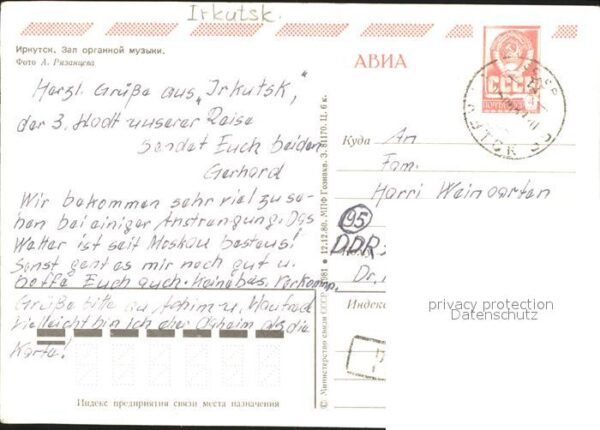 Irkutsk.
Иркутск. Зал органной музыки.
Фото А. Рязанцева
Herzl. Grüße aus „Irkutsk,"
der 3. Stadt unserer Reise
Sendet Euch beiden
Gerhard
Wir bekommen sehr viel zu se-
hen bei einiger Anstrengung. Das
Wetter ist seit Moskau bestens!
Sonst geht es mir noch gut u.
hoffe Euch auch.
Grüße bitte an Achim u. Manfred
Vielleicht bin ich eher daheim als die
Karte!
Индекс предприятия связи места назначения
© Министерство связи СССР. 1981 • 12.12.80. МПФ Гознака. З. 81170. Ц. 6 к.
АВИА
СССР
ПОЧТА
4
Куда An
Fam.
Harri Weingarten
95
DDR
Dr.
Индекс
privacy protection
Datenschutz